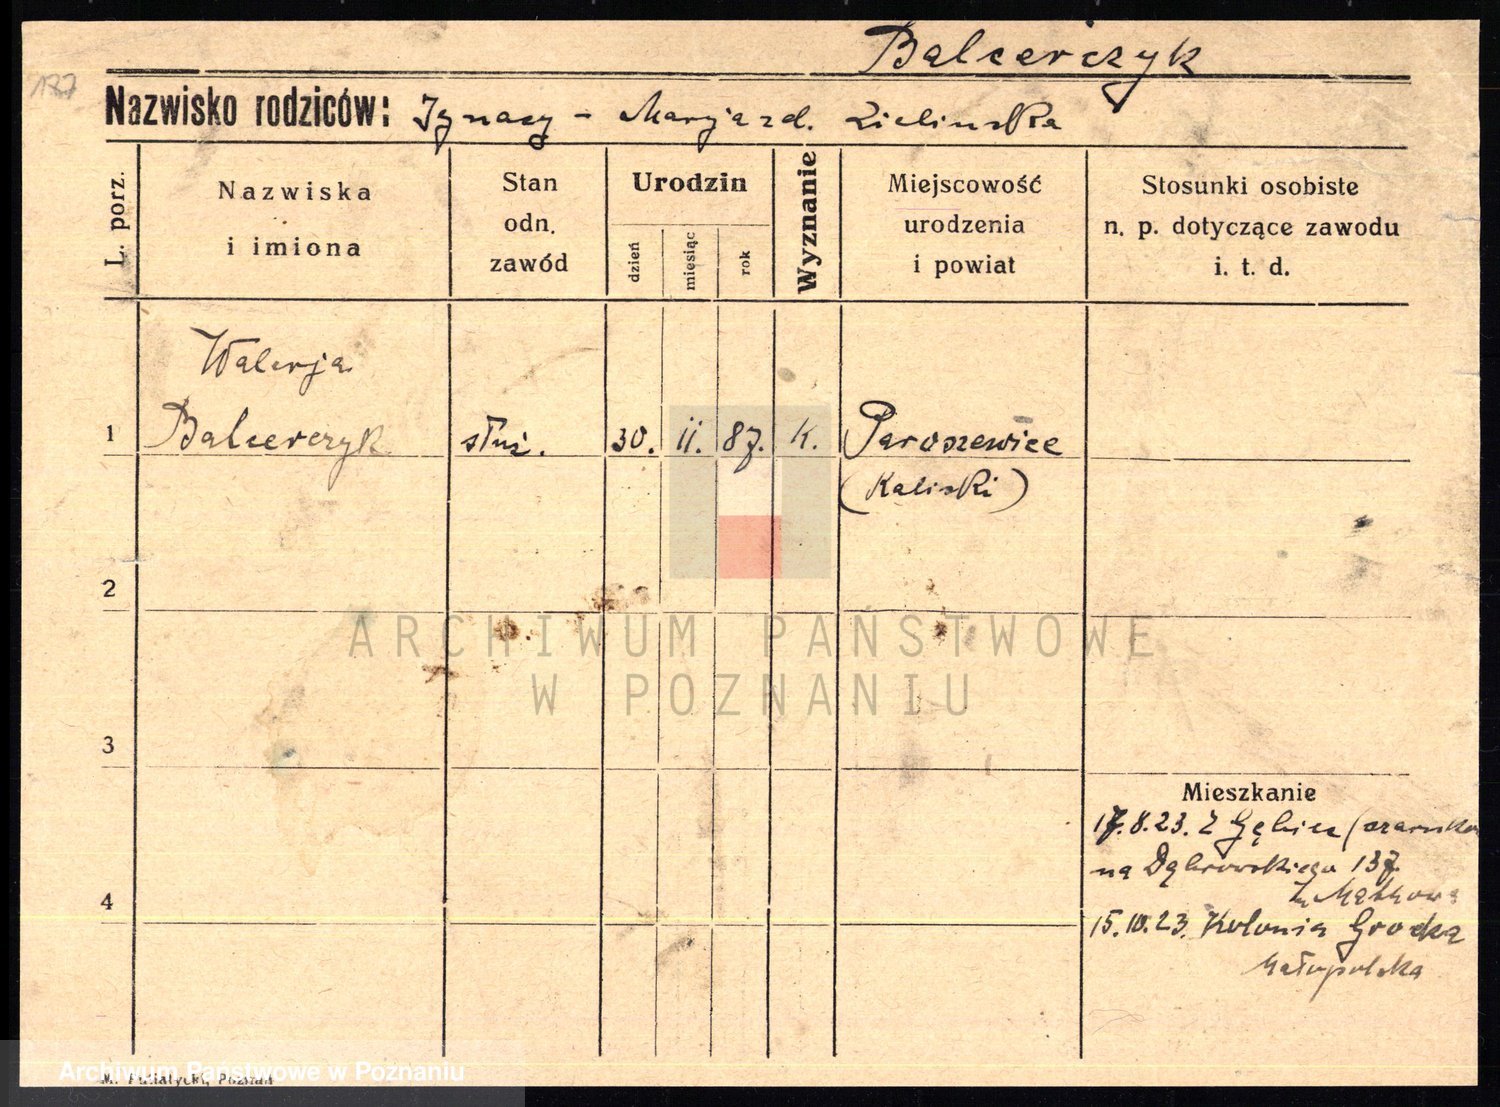 Balcerczyk
187
Nazwisko rodziców: Ignacy - Marja zd. Zielinska
L. porz.
Nazwiska
i imiona
Stan
odn.
zawód
Urodzin
dzień
miesiąc
rok
Wyznanie
Miejscowość
urodzenia
i powiat
Stosunki osobiste
n. p. dotyczące zawodu
i. t. d.
Walerja
1 Balcerczyk służ. 30. 11. 87. k. Paroszewice
(Kaliski)
2
ARCHIWUM PAŃSTWOWE
W POZNANIU
3
Mieszkanie
17.8.23. Z Gębice
na Dąbrowskiego 137.
4
15.10.23. Kolonia Grodka
Małopolska
Archiwum Państwowe w Poznaniu
M. Putiatycki, Poznań